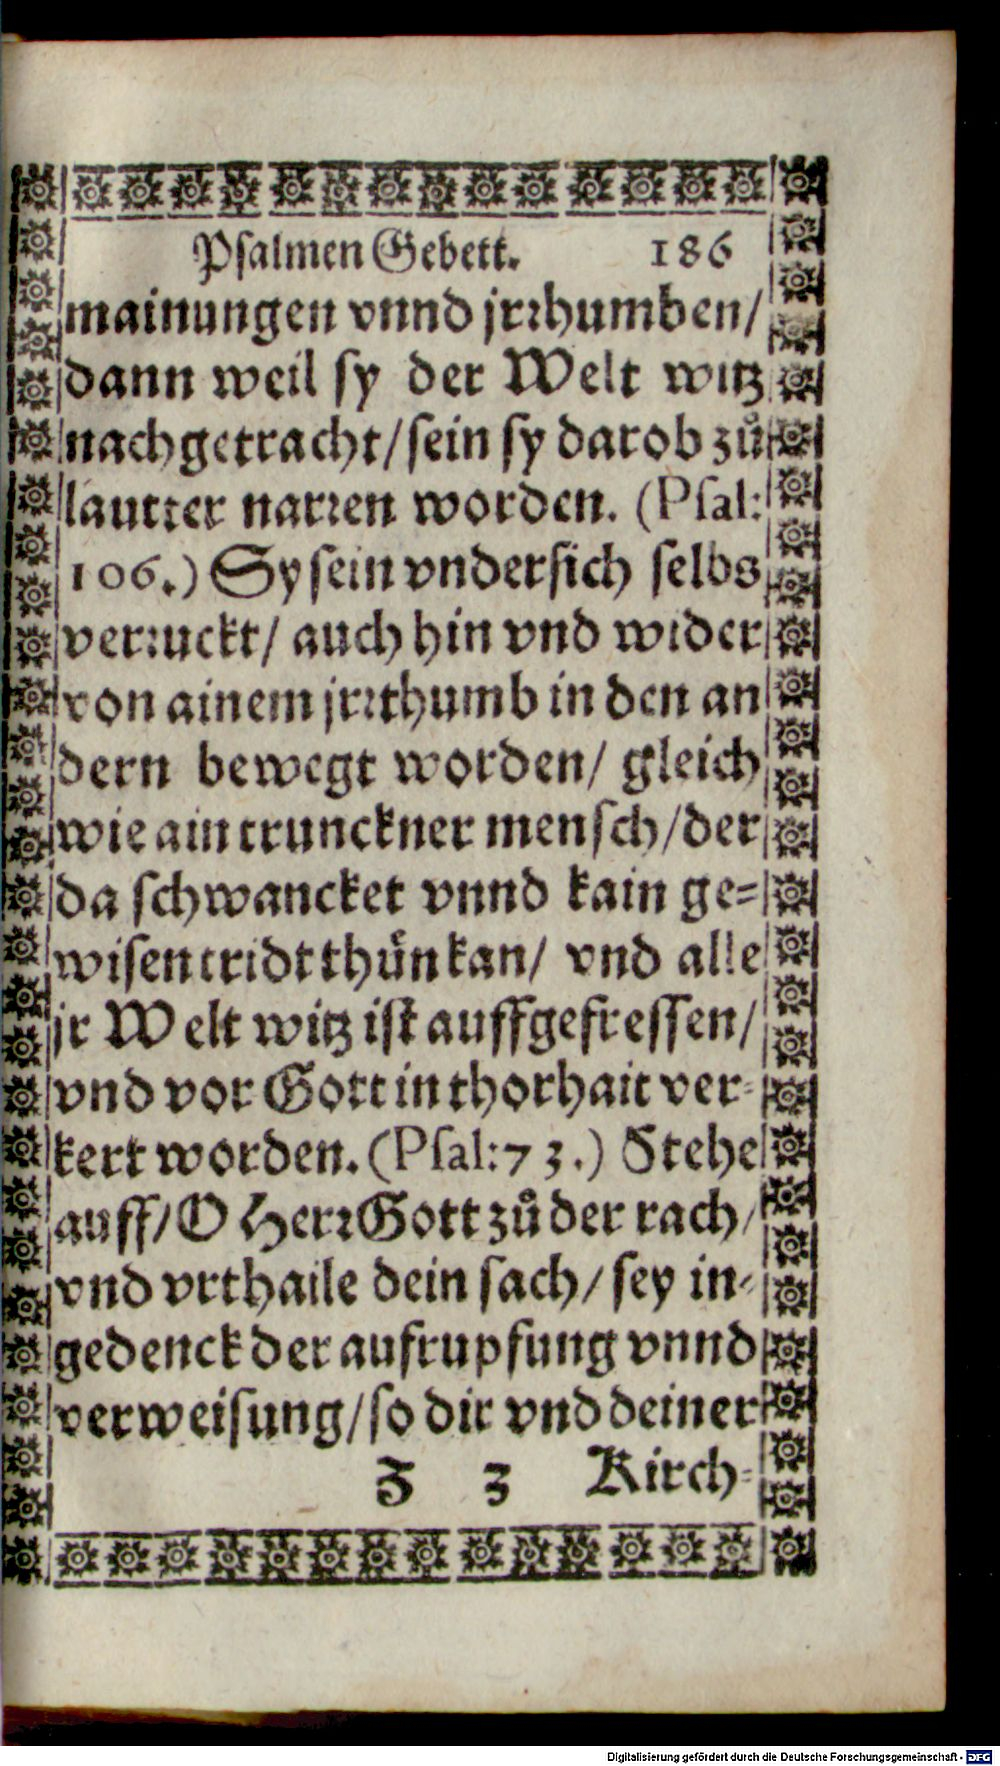 Psalmen Gebett. 186
mainungen vnnd jrrhumben/
dann weil sy der Welt witz
nachgetracht/sein sy darob zuͦ
lautter narren worden. (Psal:
106.) Sy sein vndersich selbs
verruckt/ auch hin vnd wider
von ainem jrrthumb in den an
dern bewegt worden/ gleich
wie ain trunckner mensch/der
da schwancket vnnd kain ge=
wisen tridt thuͤn kan/ vnd alle
jr Welt witz ist auffgefressen/
vnd vor Gott in thorhait ver=
kert worden. (Psal:73.) Stehe
auff/O Herr Gott zuͦ der rach/
vnd vrthaile dein sach/ sey in=
gedenck der aufrupfung vnnd
verweisung/so dir vnd deiner
Z 3 Kirch=
Digitalisierung gefördert durch die Deutsche Forschungsgemeinschaft - DFG